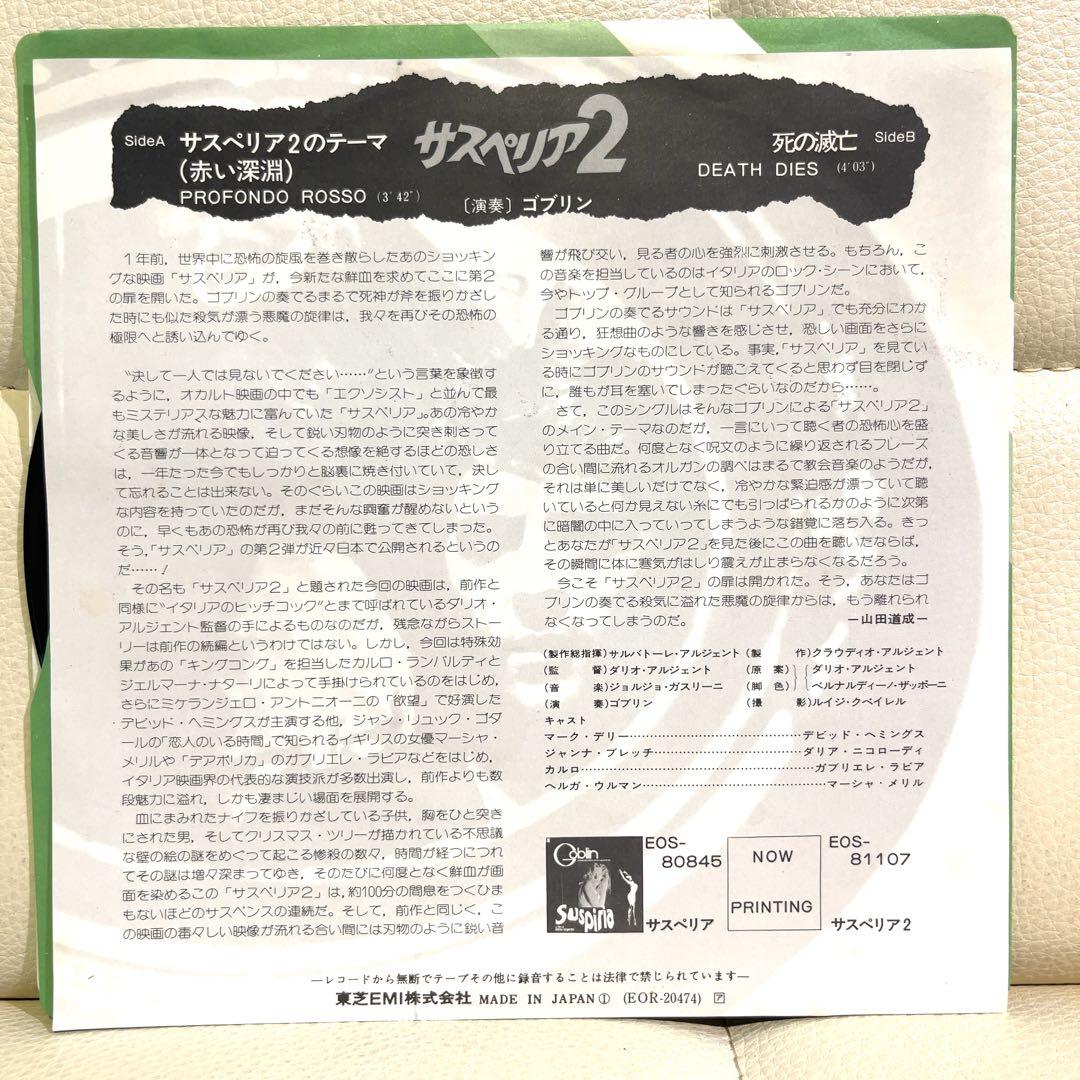 SideA サスペリア2のテーマ
(赤い深淵)
PROFONDO ROSSO (3'42")
サスペリア2
〔演奏〕ゴブリン
死の滅亡 SideB
DEATH DIES (4'03")
1年前，世界中に恐怖の旋風を巻き散らしたあのショッキン
グな映画「サスペリア」が，今新たな鮮血を求めてここに第2
の扉を開いた。ゴブリンの奏でるまるで死神が斧を振りかざし
た時にも似た殺気が漂う悪魔の旋律は，我々を再びその恐怖の
極限へと誘い込んでゆく。
"決して一人では見ないでください……"という言葉を象徴す
るように，オカルト映画の中でも「エクソシスト」と並んで最
もミステリアスな魅力に富んでいた「サスペリア」。あの冷やか
な美しさが流れる映像，そして鋭い刃物のように突き刺さって
くる音響が一体となって迫ってくる想像を絶するほどの恐しさ
は，一年たった今でもしっかりと脳裏に焼き付いていて，決し
て忘れることは出来ない。そのぐらいこの映画はショッキング
な内容を持っていたのだが，まだそんな興奮が醒めないという
のに，早くもあの恐怖が再び我々の前に甦ってきてしまった。
そう，「サスペリア」の第2弾が近々日本で公開されるというの
だ……！
その名も「サスペリア2」と題された今回の映画は，前作と
同様に"イタリアのヒッチコック"とまで呼ばれているダリオ・
アルジェント監督の手によるものなのだが，残念ながらストー
リーは前作の続編というわけではない。しかし，今回は特殊効
果があの「キングコング」を担当したカルロ・ランバルディと
ジェルマーナ・ナターリによって手掛けられているのをはじめ，
さらにミケランジェロ・アントニオーニの「欲望」で好演した
デビッド・ヘミングスが主演する他，ジャン・リュック・ゴダ
ールの「恋人のいる時間」で知られるイギリスの女優マーシャ・
メリルや「デアボリカ」のガブリエレ・ラビアなどをはじめ，
イタリア映画界の代表的な演技派が多数出演し，前作よりも数
段魅力に溢れ，しかも凄まじい場面を展開する。
血にまみれたナイフを振りかざしている子供，胸をひと突き
にされた男，そしてクリスマス・ツリーが描かれている不思議
な壁の絵の謎をめぐって起こる惨殺の数々，時間が経つにつれ
てその謎は増々深まってゆき，そのたびに何度となく鮮血が画
面を染めるこの「サスペリア2」は，約100分の間息をつくひま
もないほどのサスペンスの連続だ。そして，前作と同じく，こ
の映画の毒々しい映像が流れる合い間には刃物のように鋭い音
響が飛び交い，見る者の心を強烈に刺激させる。もちろん，こ
の音楽を担当しているのはイタリアのロック・シーンにおいて，
今やトップ・グループとして知られるゴブリンだ。
ゴブリンの奏でるサウンドは「サスペリア」でも充分にわか
る通り，狂想曲のような響きを感じさせ，恐しい画面をさらに
ショッキングなものにしている。事実，「サスペリア」を見てい
る時にゴブリンのサウンドが聴こえてくると思わず目を閉じず
に，誰もが耳を塞いでしまったぐらいなのだから……。
さて，このシングルはそんなゴブリンによる「サスペリア2」
のメイン・テーマなのだが，一言にいって聴く者の恐怖心を盛
り立てる曲だ。何度となく呪文のように繰り返されるフレーズ
の合い間に流れるオルガンの調べはまるで教会音楽のようだが，
それは単に美しいだけでなく，冷やかな緊迫感が漂っていて聴
いていると何か見えない糸にでも引っぱられるかのように次第
に暗闇の中に入っていってしまうような錯覚に落ち入る。きっ
とあなたが「サスペリア2」を見た後にこの曲を聴いたならば，
その瞬間に体に寒気がはしり震えが止まらなくなるだろう。
今こそ「サスペリア2」の扉は開かれた。そう，あなたはゴ
ブリンの奏でる殺気に溢れた悪魔の旋律からは，もう離れられ
なくなってしまうのだ。 ー山田道成ー
(製作総指揮)サルバトーレ・アルジェント (製 作)クラウディオ・アルジェント
(監 督)ダリオ・アルジェント (原 案) ダリオ・アルジェント
(音 楽)ジョルジョ・ガスリーニ (脚 色) ベルナルディーノ・ザッポーニ
(演 奏)ゴブリン (撮 影)ルイジ・クベイレル
キャスト
マーク・デリー……デビッド・ヘミングス
ジャンナ・ブレッチ……ダリア・ニコローディ
カルロ……ガブリエレ・ラビア
ヘルガ・ウルマン……マーシャ・メリル
Goblin
Suspiria
EOS-
80845
サスペリア
NOW
PRINTING
EOS-
81107
サスペリア2
―レコードから無断でテープその他に録音することは法律で禁じられています―
東芝EMI株式会社 MADE IN JAPAN Ⓘ (EOR-20474) ア